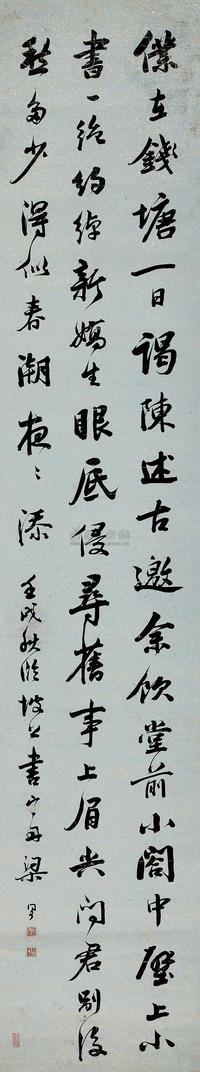 僕在錢塘一日謁陳述古邀余飲堂前小閣中壁上小
書一絕約綽新嬌生眼底侵尋舊事上眉尖問君別後
愁多少得似春潮夜〻添
壬戌秋臨坡公書山舟梁